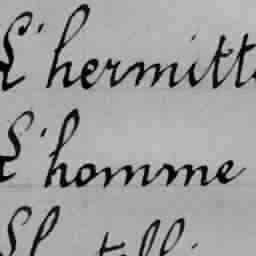 L'hermitt
L'homme